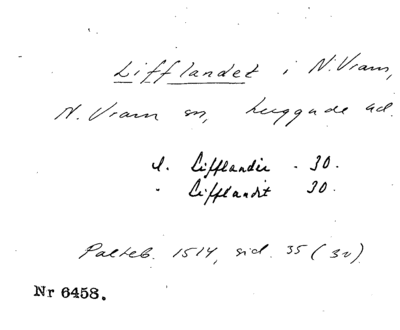 Lifflandet i N. Vram,
N. Vram sn, Luggude hd.
d. Lifflandie - 30.
- Lifflandt 30.
Palteb. 1514, sid. 35 (30)
Nr 6458.